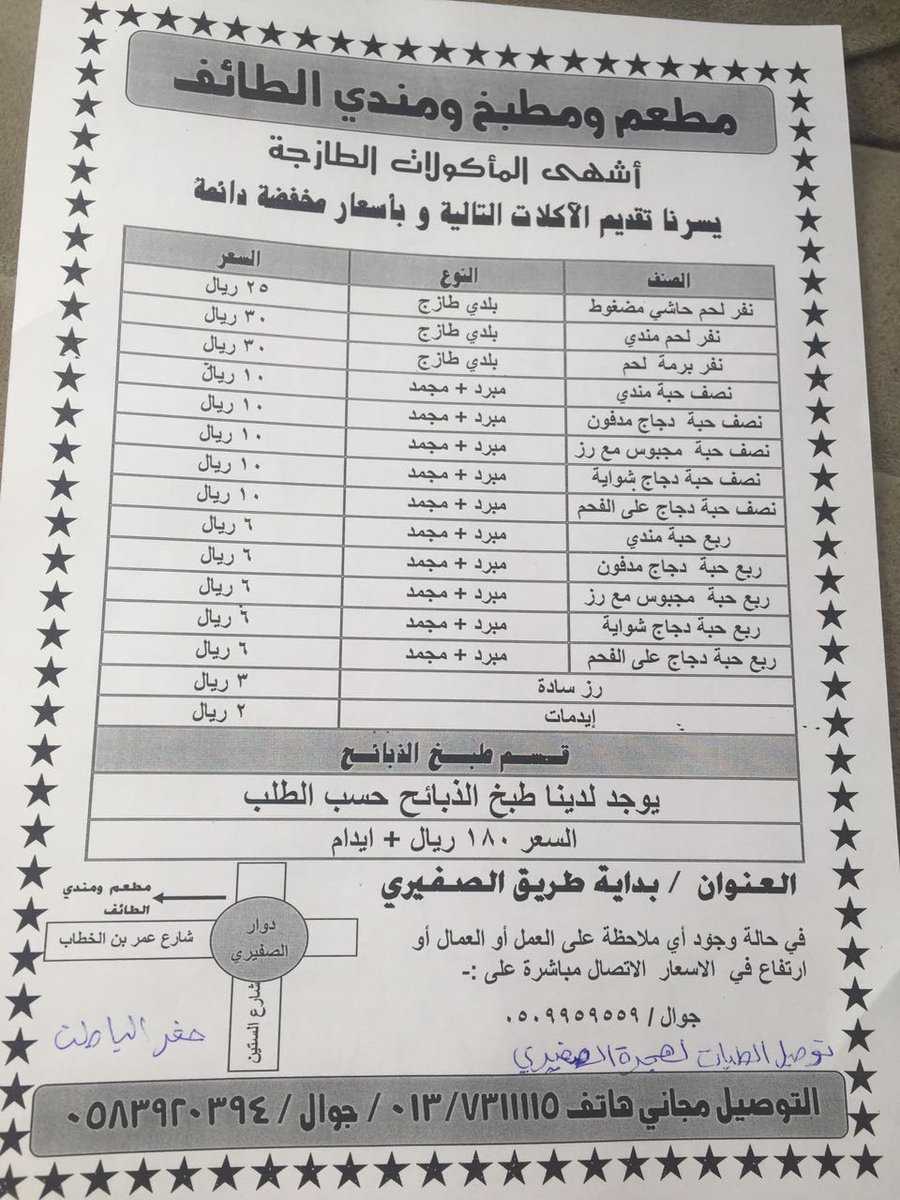 مطعم ومطبخ ومندي الطائف
أشهى المأكولات الطازجة
يسرنا تقديم الآكلات التالية و بأسعار مخفضة دائمة
الصنف النوع السعر
نفر لحم حاشي مضغوط بلدي طازج ٢٥ ريال
نفر لحم مندي بلدي طازج ٣٠ ريال
نفر برمة لحم بلدي طازج ٣٠ ريال
نصف حبة مندي مبرد + مجمد ١٠ ريال
نصف حبة دجاج مدفون مبرد + مجمد ١٠ ريال
نصف حبة مجبوس مع رز مبرد + مجمد ١٠ ريال
نصف حبة دجاج شواية مبرد + مجمد ١٠ ريال
نصف حبة دجاج على الفحم مبرد + مجمد ١٠ ريال
ربع حبة مندي مبرد + مجمد ٦ ريال
ربع حبة دجاج مدفون مبرد + مجمد ٦ ريال
ربع حبة مجبوس مع رز مبرد + مجمد ٦ ريال
ربع حبة دجاج شواية مبرد + مجمد ٦ ريال
ربع حبة دجاج على الفحم مبرد + مجمد ٦ ريال
رز سادة ٣ ريال
إيدمات ٢ ريال
قسم طبخ الذبائح
يوجد لدينا طبخ الذبائح حسب الطلب
السعر ١٨٠ ريال + ايدام
العنوان / بداية طريق الصفيري
مطعم ومندي
الطائف
دوار
الصفيري
شارع عمر بن الخطاب
شارع الستين
في حالة وجود أي ملاحظة على العمل أو العمال أو
ارتفاع في الاسعار الاتصال مباشرة على :-
جوال / ٠٥٠٩٩٥٩٥٥٩
حفر الباطن
توصيل الطلبات لهجرة الصفيري
التوصيل مجاني هاتف ٠١٣/٧٣١١١١٥ / جوال / ٠٥٨٣٩٢٠٣٩٤